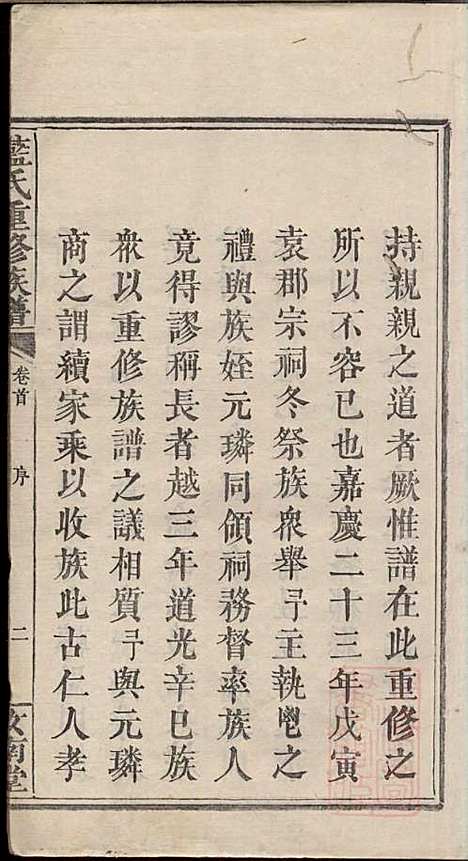 持親親之道者厥惟譜在此重修之
所以不容已也嘉慶二十三年戊寅
袁郡宗祠冬祭族衆舉予主執鬯之
禮與族姪元璘同領祠務督率族人
竟得謬稱長者越三年道光辛巳族
衆以重修族譜之議相質予與元璘
商之謂續家乘以收族此古仁人孝
藍氏重修族譜 卷首 序 二 堂